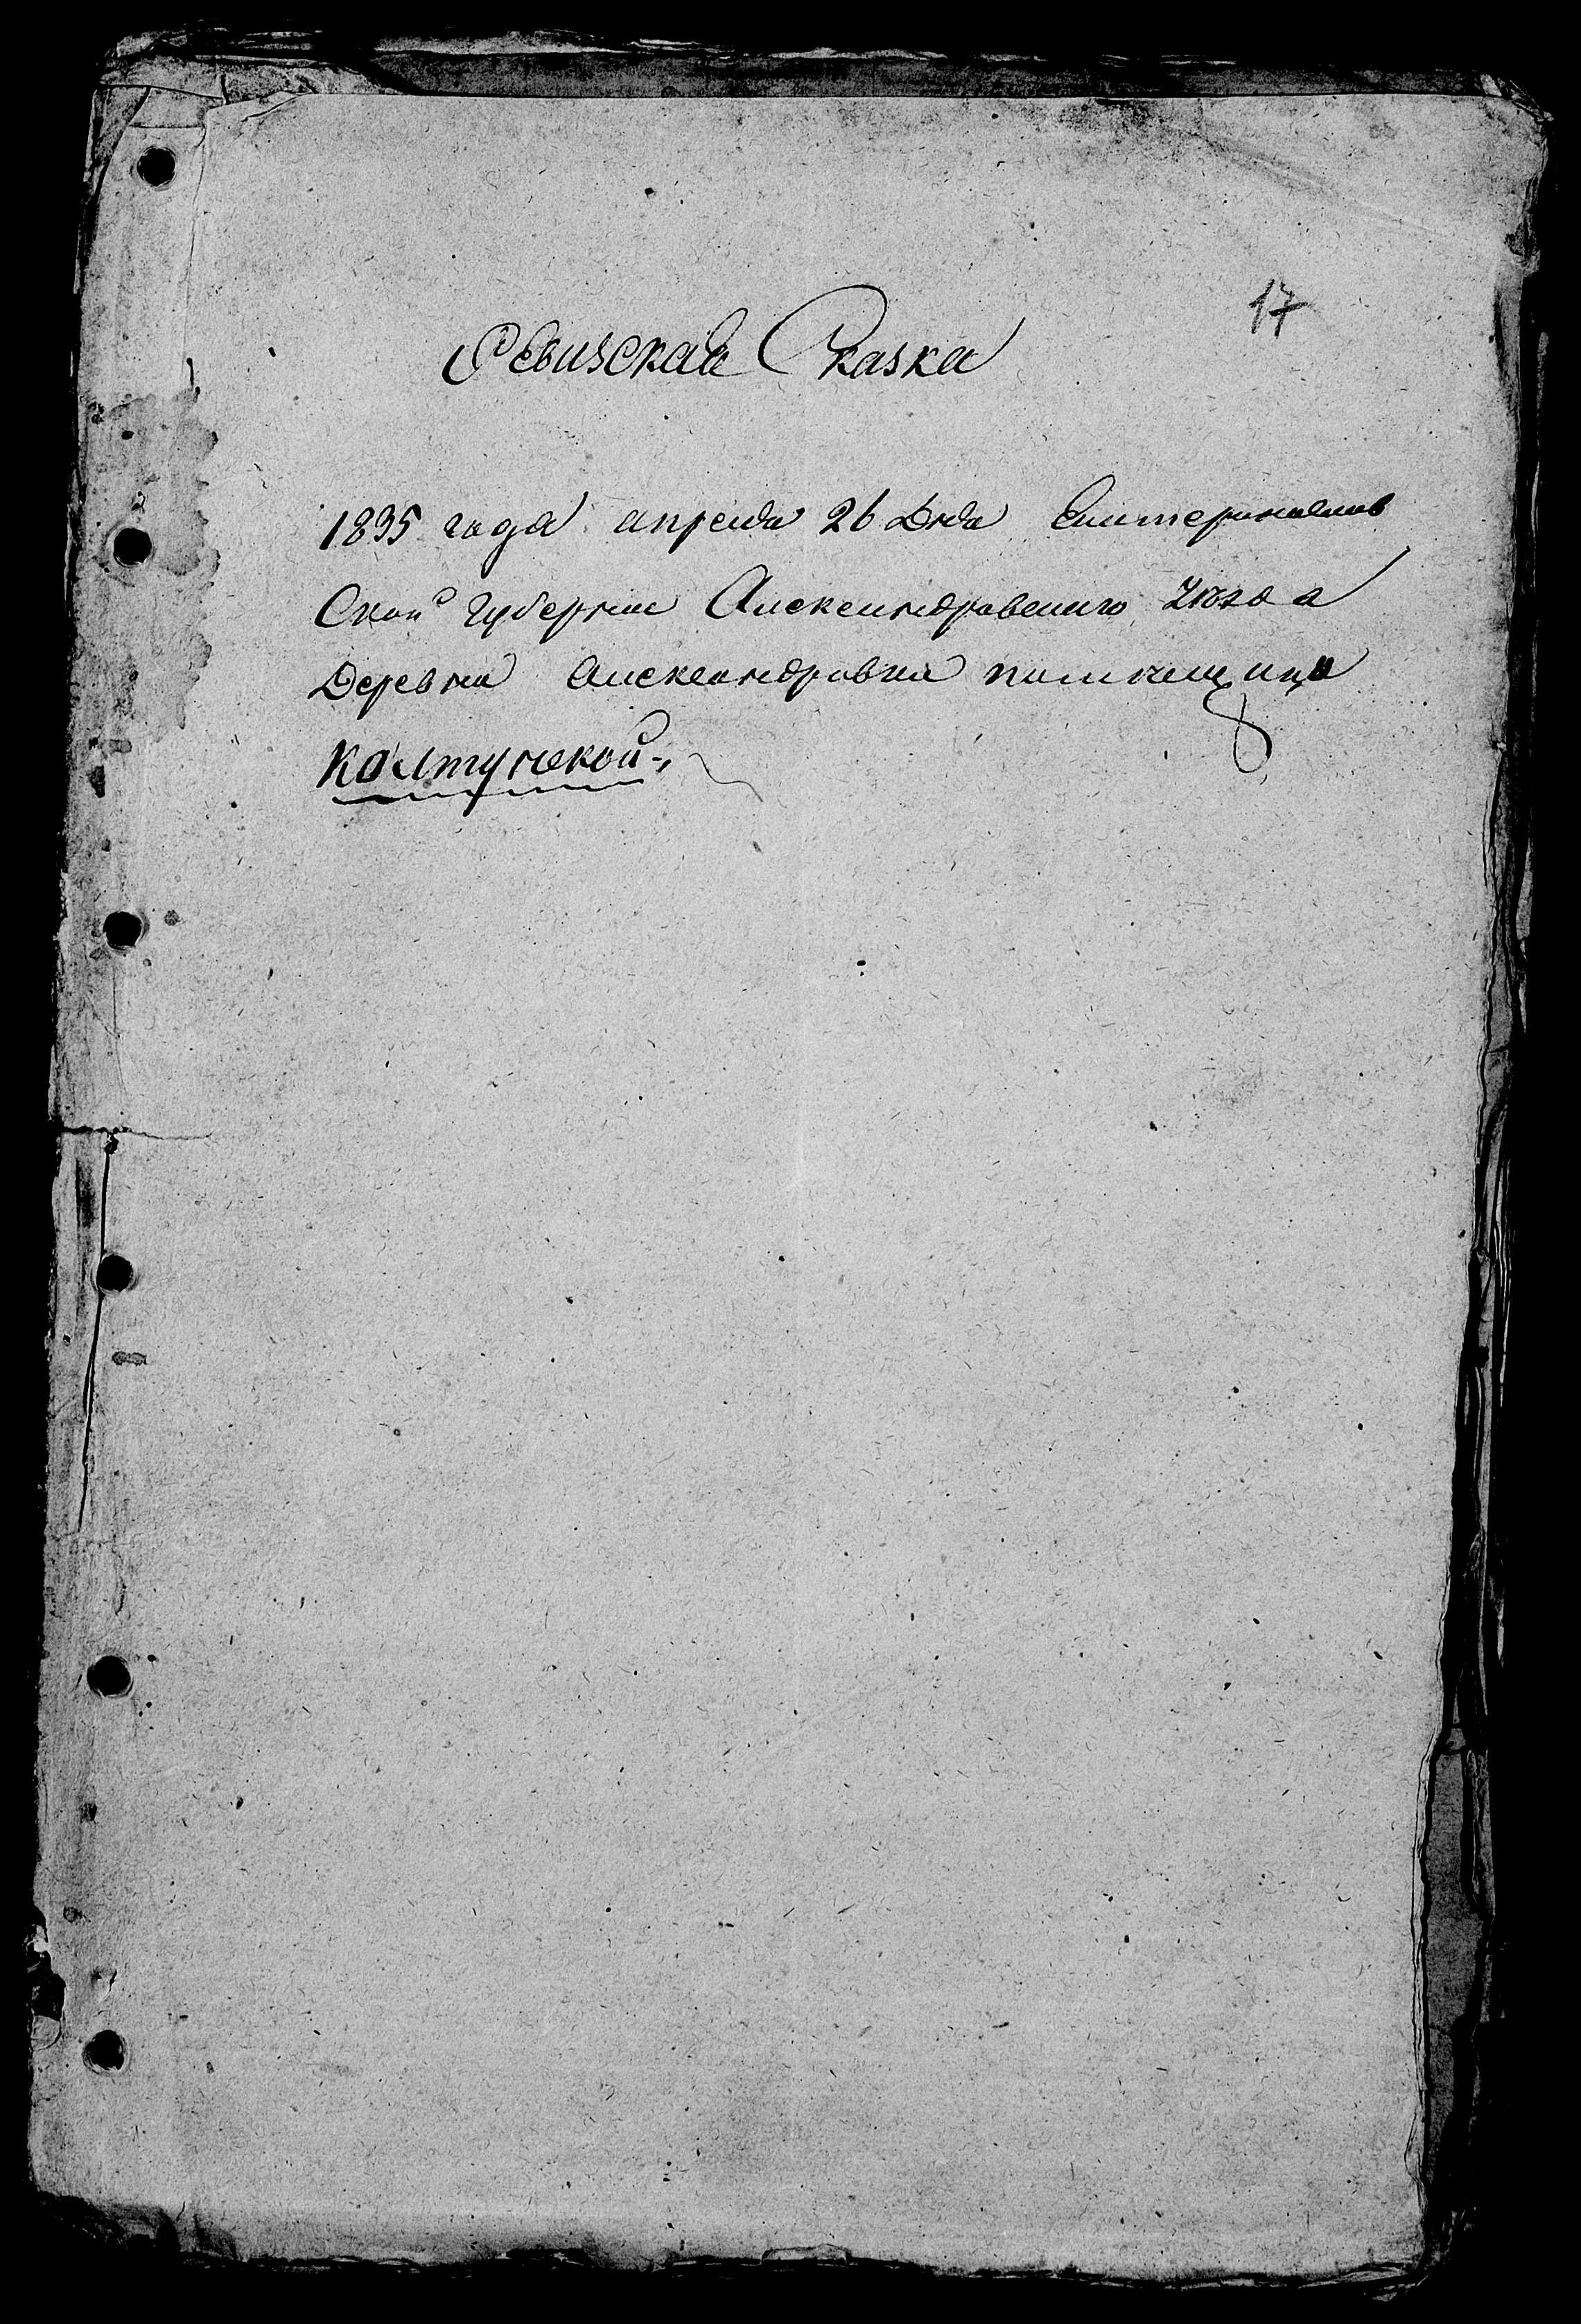 17
Ревизская Сказка
1835 года апреля 26 Дня Екатеринослав
Ской губернии Александровского Уезда
Деревни Александровки помещицы
Колтунской